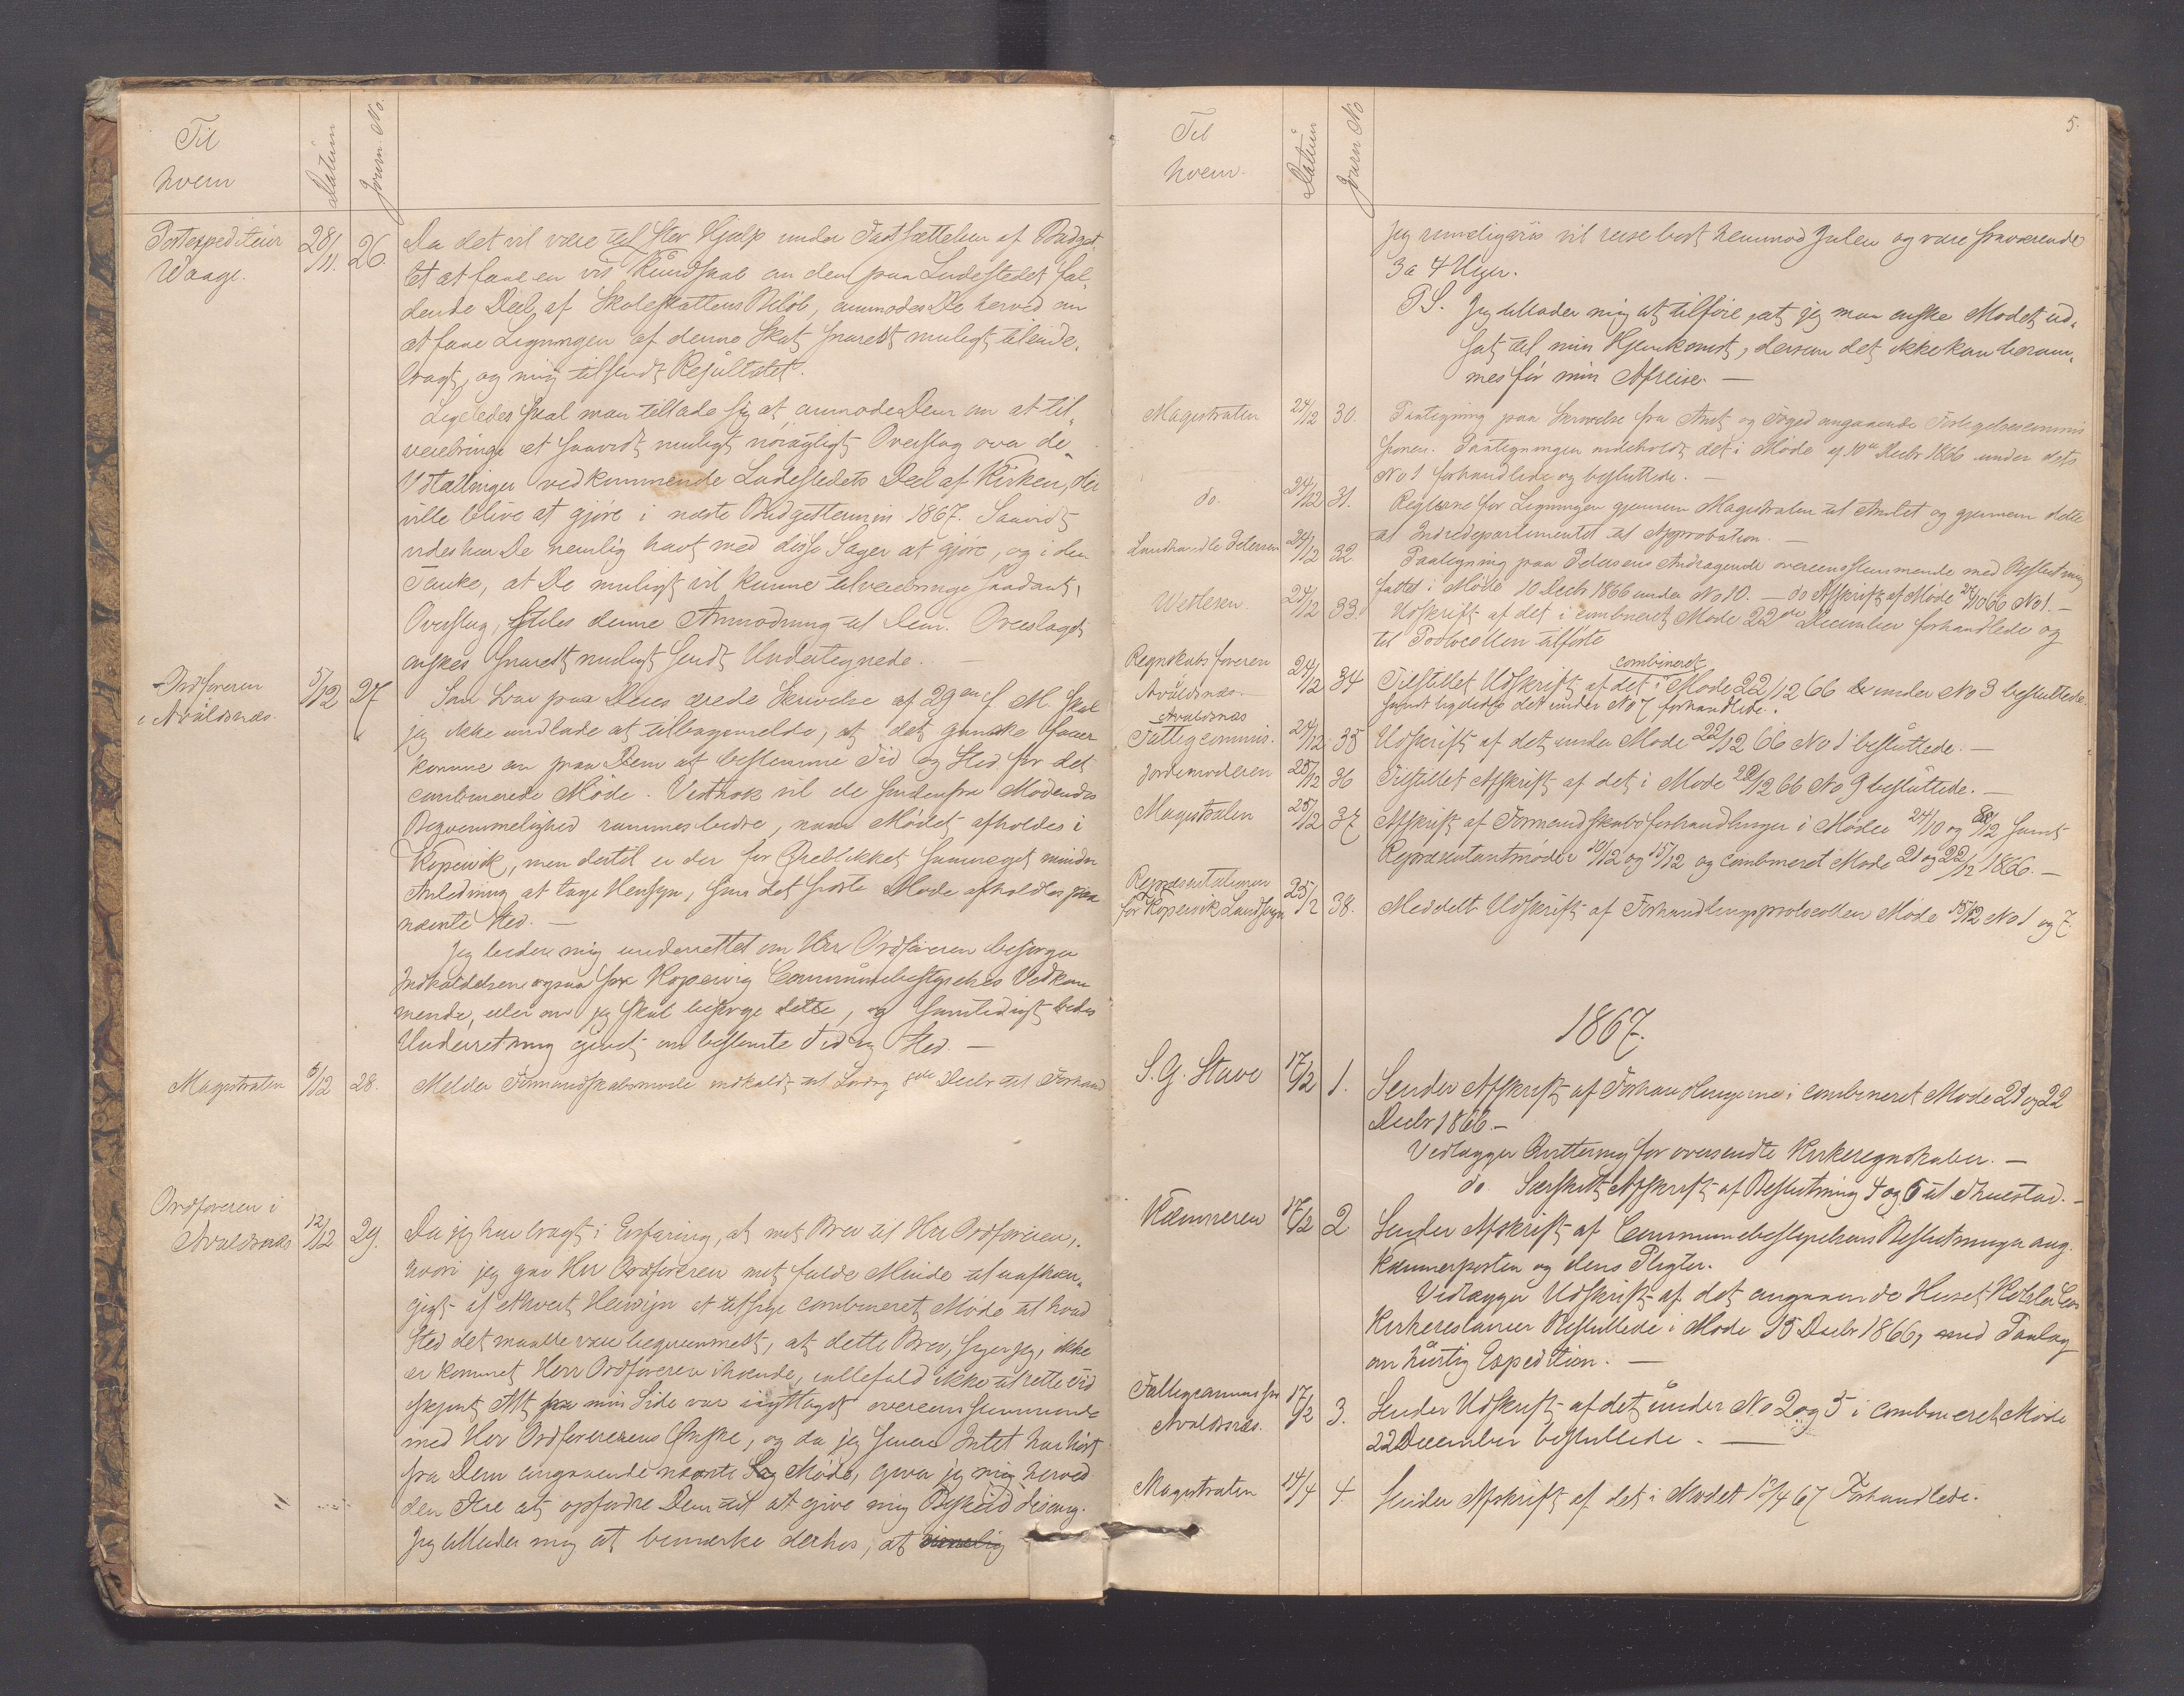 Til hvem
Datum
Journ. No.
Postexpediteur Waage.
28/11.
26.
Da det vil være til stor Hjælp under Fastsættelsen af Budget,
tet at faae en vis Kundskab om den paa Ladestedet fal,
dende Deel af Skoleskattens Beløb, anmodes De herved om
at faae Ligningen af denne Skat snarest muligt tilende,
bragt, og mig tilsendt Resultatet.
Ligeledes skal man tillade sig at anmode Dem om at til,
veiebringe et saavidt muligt nøiagtigt Overslag over de
Udtællinger vedkommende Ladestedets Deel af Kirken, der
ville blive at gjøre i næste Budgettermin 1867. Saavidt
vides har De nemlig havt med disse Sager at gjøre, og i den
Tanke, at De muligt vil kunne tilveiebringe saadant
Overslag, stiles denne Anmodning til Dem. Overslaget
ønskes snarest muligt sendt Undertegnede. —
Ordføreren i Avaldsnæs
5/12
27
Som Svar paa Deres ærede Skrivelse af 29en f. M. skal
jeg ikke undlade at tilbagemelde, at det ganske faaer
komme an paa Dem at bestemme Tid og Sted for det
combinerede Møde. Vistnok vil de Mødendes
Beqvemmelighed rammes bedre, naar Mødet afholdes i
Kopervik, men dertil er der for Øieblikket saameget mindre
Anledning at tage Hensyn, som det sidste Møde afholdtes paa
nævnte Sted. —
Jeg beder mig underrettet om Herr Ordføreren besørger
Indkaldelsene ogsaa for Kopervig Communebestyrelses Vedkom
mende, eller om jeg skal besørge dette, og samtidigt bedes
Underretning givet om bestemte Tid og Sted. —
Magistraten
6/12
28.
Melder Formandskabsmøde indkaldt til Lørdag 8de Decbr til Forhand
Ordføreren i Avaldsnæs
12/12
29.
Da jeg har bragt i Erfaring, at mit Brev til Hr Ordføreren,
hvori jeg gav Hr Ordføreren mit fulde Minde til uafhæn,
gigt af ethvert Hensyn at udsige combineret Møde til hvad
Sted det maatte være beqvemmest, at dette Brev, siger jeg, ikke
er kommet Herr Ordføreren ihænde, iallefald ikke til rette Tid
skjønt Alt fra min Side var iagttaget overeensstemmende
med Herr Ordførerens Ønske, og da jeg senere Intet har hørt
fra Dem angaaende nævnte Møde, giver jeg mig herved
den Ære at opfordre Dem til at give mig Beskeed desang.
Jeg tillader mig at bemærke derhos, at rimelig
Til hvem.
Datum
Journ No
5.
jeg rimeligviis vil reise bort henimod Julen og være fraværende
3 a 4 Uger.
PS. Jeg tillader mig at tilføie, at jeg maa ønske Mødet ud,
sat til min Hjemkomst, dersom det ikke kan beram,
mes før min Afreise. —
Magistraten
24/12
30.
Paategning paa Skrivelse fra Amt og Foged angaaende Forligelsescommis
sionen. Paategningen indeholdt det i Møde 10de Decbr 1866 under dets
No 1 forhandlede og besluttede. —
do.
24/12
31.
Reglerne for Ligningen gjennem Magistraten til Amtet og gjennem dette
til Indredepartementet til Approbation. —
Landhandler Petersen
24/12
32
Paategning paa Petersens Andragende overeensstemmende med Beslutning
fattet i Møde 10 Decbr 1866 under No 10. — do Afskrift af Møde 24/10 66 No 1. —
Wetlesen.
24/12
33.
Udskrift af det i combineret Møde 22de December forhandlede og
til Protocollen tilførte
Regnskabsføreren Avaldsnæs
24/12
34
Tilstillet Udskrift af det i combineret Møde 22/12 66 under No 3 besluttede
samt ligeledes det under No 7 forhandlede.
Avaldsnæs Fattigcommis.
24/12
35
Udskrift af det under Møde 22/12 66 No 1 besluttede. —
Jordemoderen
25/12
36
Tilstillet Afskrift af det i Møde 22/12 66 No 9 besluttede. —
Magistraten
25/12
37
Afskrift af Formandskabsforhandlinger i Møder 24/10 og 8/12 samt
Repræsentantmøder 10/12 og 15/12 og combineret Møde 21 og 22/12 1866. —
Repræsentationen for Kopervik Landsogn
25/12
38.
Meddelt Udskrift af Forhandlingsprotocollen Møde 15/12 No 1 og 7.
1867.
S. G. Stave
17/2
1.
Sender Afskrift af Forhandlingerne i combineret Møde 21 og 22
Decbr 1866. —
Vedlægger Qvittering for oversendte Kirkeregnskaber. —
do. Særskilt Afskrift af Beslutning 4 og 6 til
Kæmneren
17/2
2
Sender Afskrift af Communebestyrelsens Beslutninger ang.
Kæmnerposten og dens Pligter.
Vedlægger Udskrift af det angaaende Huset
Kirkerestancer Besluttede i Møde 15 Decbr 1866, med Paalæg
om hurtig Expedition. —
Fattigcommission Avaldsnæs.
17/2
3.
Sender Udskrift af det under No 2 og 5 i combineret Møde
22 December besluttede. —
Magistraten
14/4
4.
Sender Afskrift af det i Mødet 12/4 67 Forhandlede.